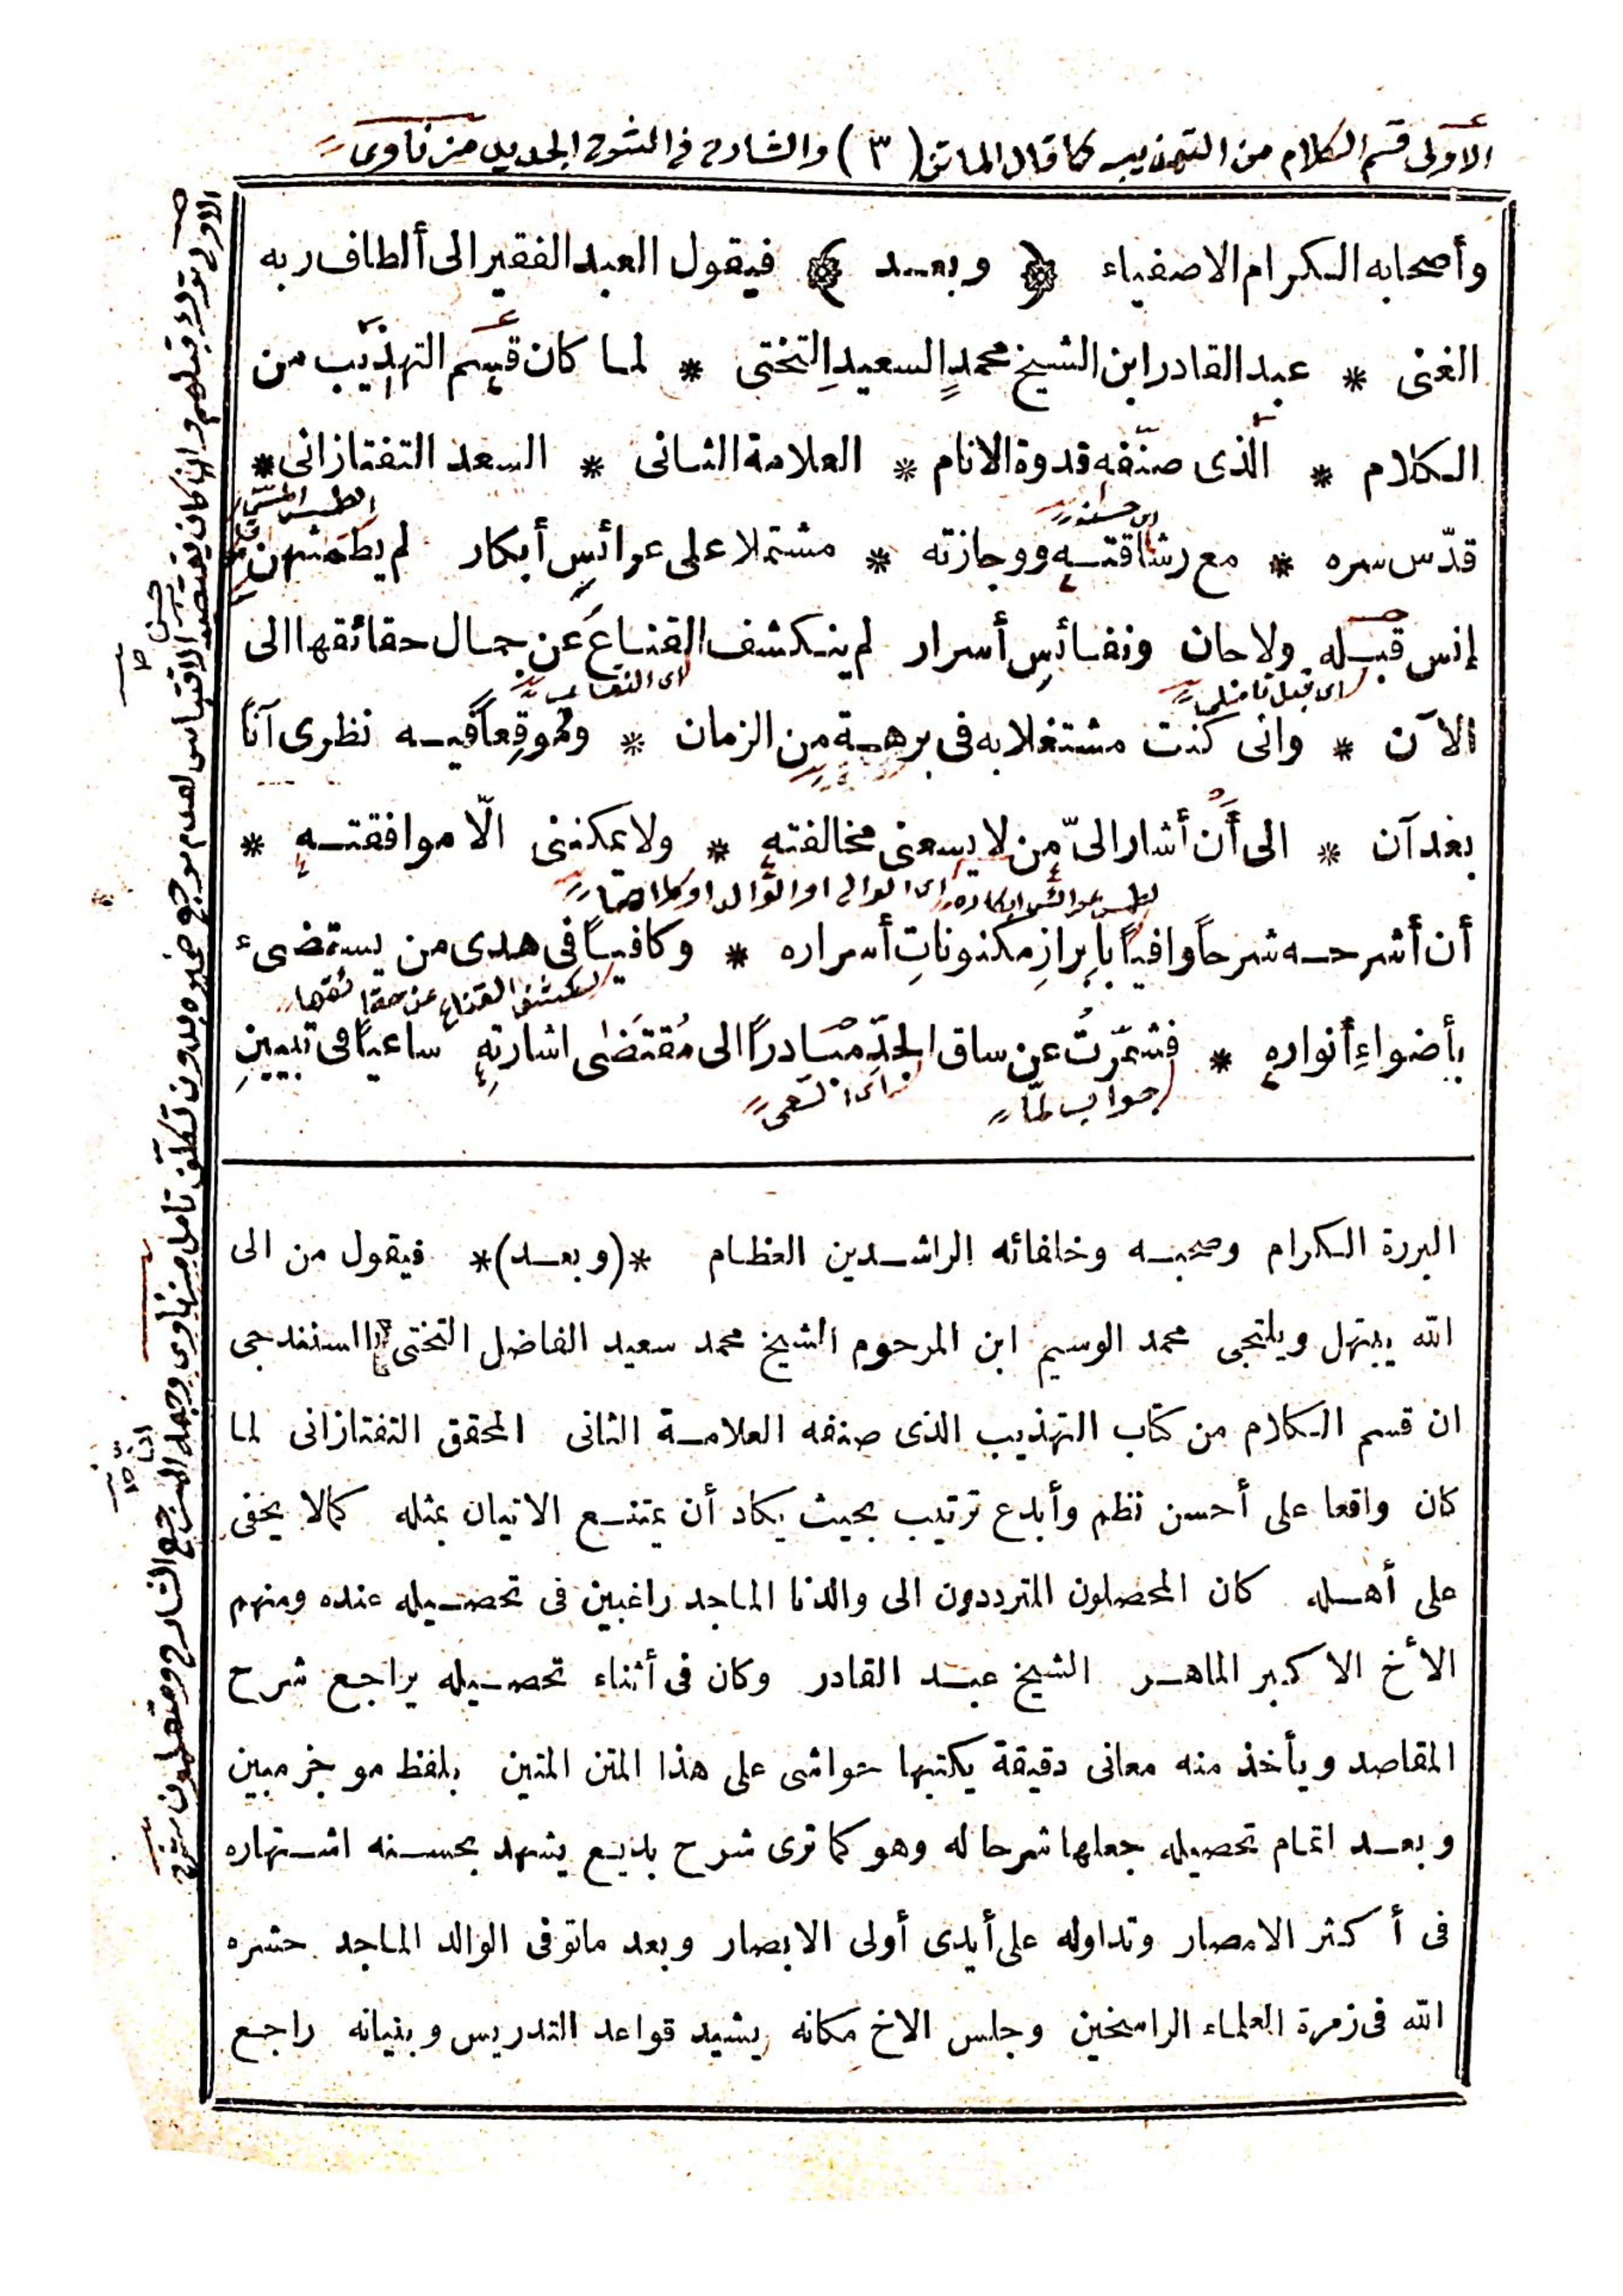 الأولى قسم الكلام من التهذيب كما قال الماتن (٣) والشارح فى الشرح الجديد
وأصحابه الكرام الاصفياء ﴿ وبعد ﴾ فيقول العبد الفقير الى ألطاف ربه
الغنى * عبد القادر ابن الشيخ محمدٍ السعيدِ التختى * لما كان قسم التهذيب من
الكلام * الّذى صنّفه قدوة الانام * العلامة الثانى * السعد التفتازانى *
قدّس سره * مع رشاقته ووجازته * مشتملا على عرائسِ أبكار لم يطمثهن
إنس قبله ولا جان ونفائسِ أسرار لم ينكشف القناع عن جمال حقائقها الى
الآن * وانى كنت مشتغلا به فى برهة من الزمان * وموقِعاً فيه نظرى آناً
بعد آن * الى أن أشار الىّ من لا يسعنى مخالفته * ولا يمكننى الّا موافقته *
أن أشرحه شرحاً وافياً بابرازِ مكنوناتِ أسراره * وكافياً فى هدى من يستضىء
بأضواءِ أنواره * فشمّرتُ عن ساق الجدّ مبادراً الى مُقتضى اشارتِه ساعياً فى تبيينِ
جواب لمّا
البررة الكرام وصحبه وخلفائه الراشدين العظام *(وبعد)* فيقول من الى
الله يبتهل ويلتجى محمد الوسيم ابن المرحوم الشيخ محمد سعيد الفاضل التختى السنندجى
ان قسم الكلام من كتاب التهذيب الذى صنفه العلامة الثانى المحقق التفتازانى لما
كان واقعا على أحسن نظم وأبدع ترتيب بحيث يكاد أن يمتنع الاتيان بمثله كمالا يخفى
على أهله كان المحصلون المترددون الى والدنا الماجد راغبين فى تحصيله عنده ومنهم
الأخ الاكبر الماهر الشيخ عبد القادر وكان فى أثناء تحصيله يراجع شرح
المقاصد ويأخذ منه معانى دقيقة يكتبها حواشى على هذا المتن المتين بلفظ موجز مبين
وبعد اتمام تحصيله جعلها شرحا له وهو كما ترى شرح بديع يشهد بحسنه اشتهاره
فى أكثر الامصار وتداوله على أيدى أولى الابصار وبعد ماتوفى الوالد الماجد حشره
الله فى زمرة العلماء الراسخين وجلس الاخ مكانه يشيد قواعد التدريس وبنيانه راجع